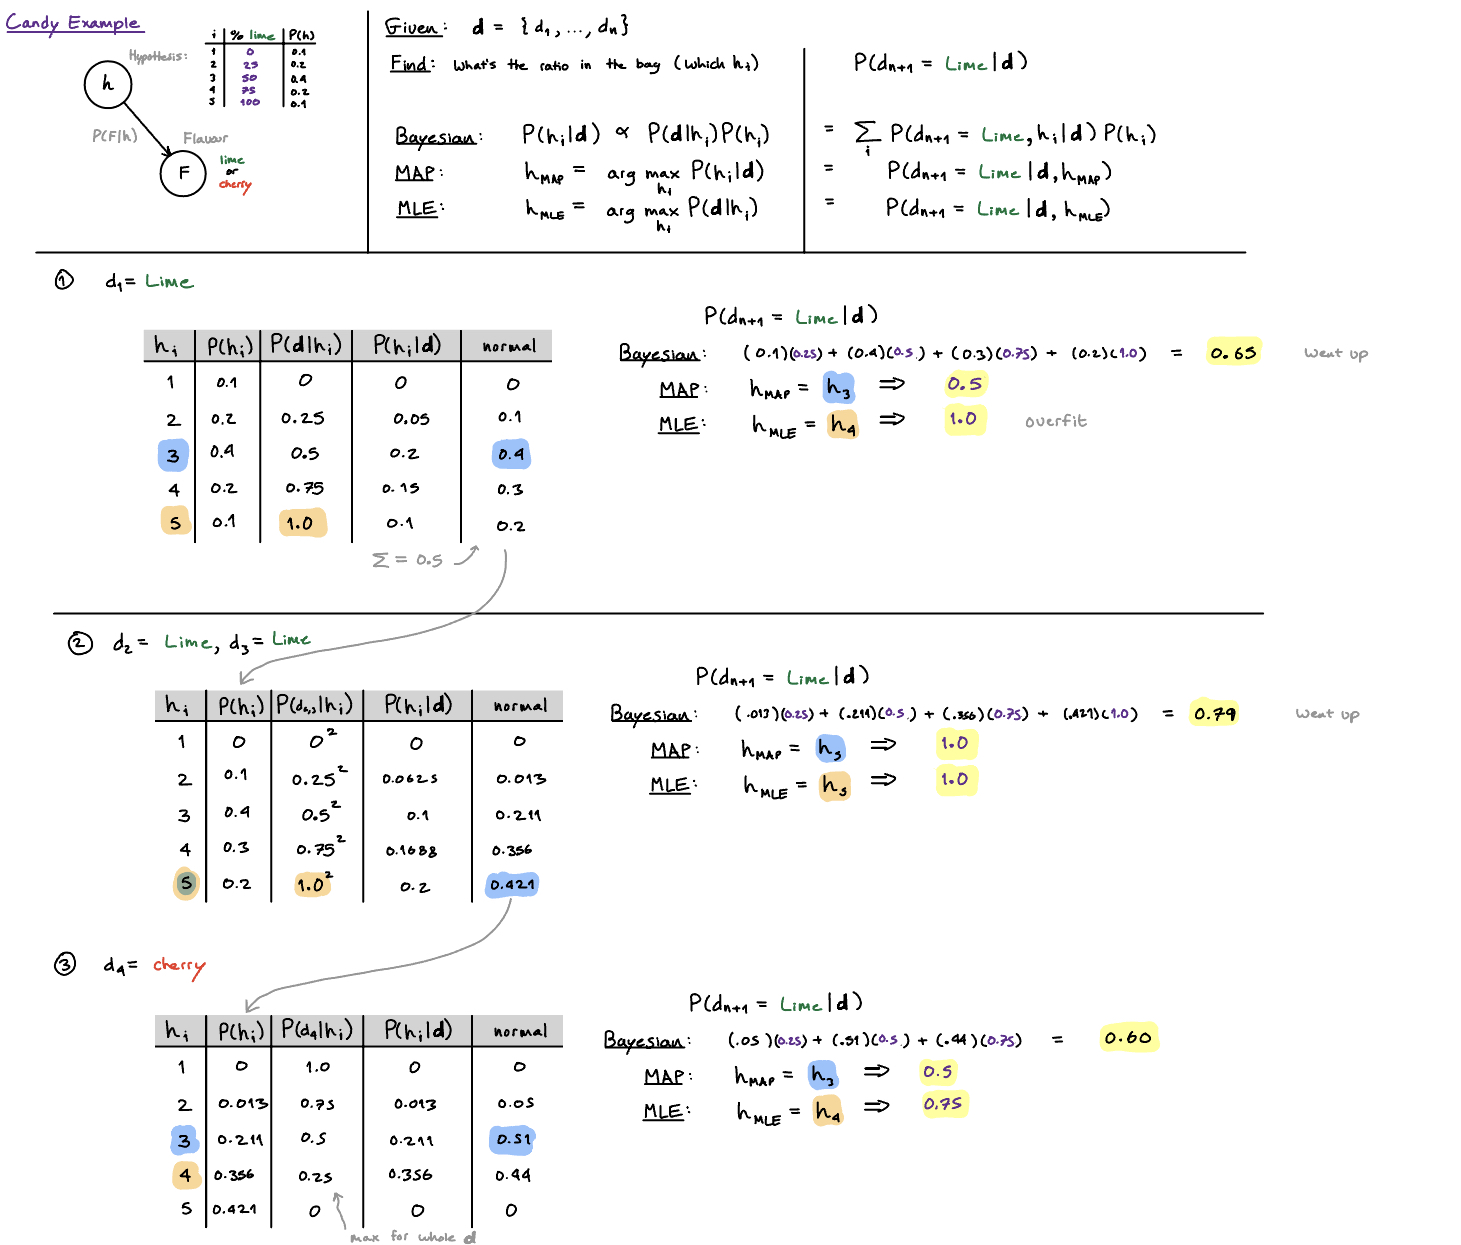 Candy Example
i % lime P(h)
1 0 0.1
2 25 0.2
3 50 0.4
4 75 0.2
5 100 0.1
Hypothesis:
h
P(F|h)
Flavour
F
lime
or
cherry
Given: d = {d₁, ..., dₙ}
Find: What's the ratio in the bag (which hᵢ)
P(dₙ₊₁ = Lime | d)
Bayesian: P(hᵢ|d) ∝ P(d|hᵢ)P(hᵢ)
= Σᵢ P(dₙ₊₁ = Lime, hᵢ|d) P(hᵢ)
MAP: h_MAP = arg max_hᵢ P(hᵢ|d)
= P(dₙ₊₁ = Lime | d, h_MAP)
MLE: h_MLE = arg max_hᵢ P(d|hᵢ)
= P(dₙ₊₁ = Lime | d, h_MLE)
① d₁ = Lime
hᵢ P(hᵢ) P(d|hᵢ) P(hᵢ|d) normal
1 0.1 0 0 0
2 0.2 0.25 0.05 0.1
3 0.4 0.5 0.2 0.4
4 0.2 0.75 0.15 0.3
5 0.1 1.0 0.1 0.2
Σ = 0.5
P(dₙ₊₁ = Lime | d)
Bayesian: (0.1)(0.25) + (0.4)(0.5) + (0.3)(0.75) + (0.2)(1.0) = 0.65 Went up
MAP: h_MAP = h₃ ⇒ 0.5
MLE: h_MLE = h₄ ⇒ 1.0 overfit
② d₂ = Lime, d₃ = Lime
hᵢ P(hᵢ) P(d₂,₃|hᵢ) P(hᵢ|d) normal
1 0 0² 0 0
2 0.1 0.25² 0.0625 0.013
3 0.4 0.5² 0.1 0.211
4 0.3 0.75² 0.1688 0.356
5 0.2 1.0² 0.2 0.421
P(dₙ₊₁ = Lime | d)
Bayesian: (.013)(0.25) + (.211)(0.5) + (.356)(0.75) + (.421)(1.0) = 0.79 Went up
MAP: h_MAP = h₅ ⇒ 1.0
MLE: h_MLE = h₅ ⇒ 1.0
③ d₄ = cherry
hᵢ P(hᵢ) P(d₄|hᵢ) P(hᵢ|d) normal
1 0 1.0 0 0
2 0.013 0.75 0.013 0.05
3 0.211 0.5 0.211 0.51
4 0.356 0.25 0.356 0.44
5 0.421 0 0 0
max for whole d
P(dₙ₊₁ = Lime | d)
Bayesian: (.05)(0.25) + (.51)(0.5) + (.44)(0.75) = 0.60
MAP: h_MAP = h₃ ⇒ 0.5
MLE: h_MLE = h₄ ⇒ 0.75